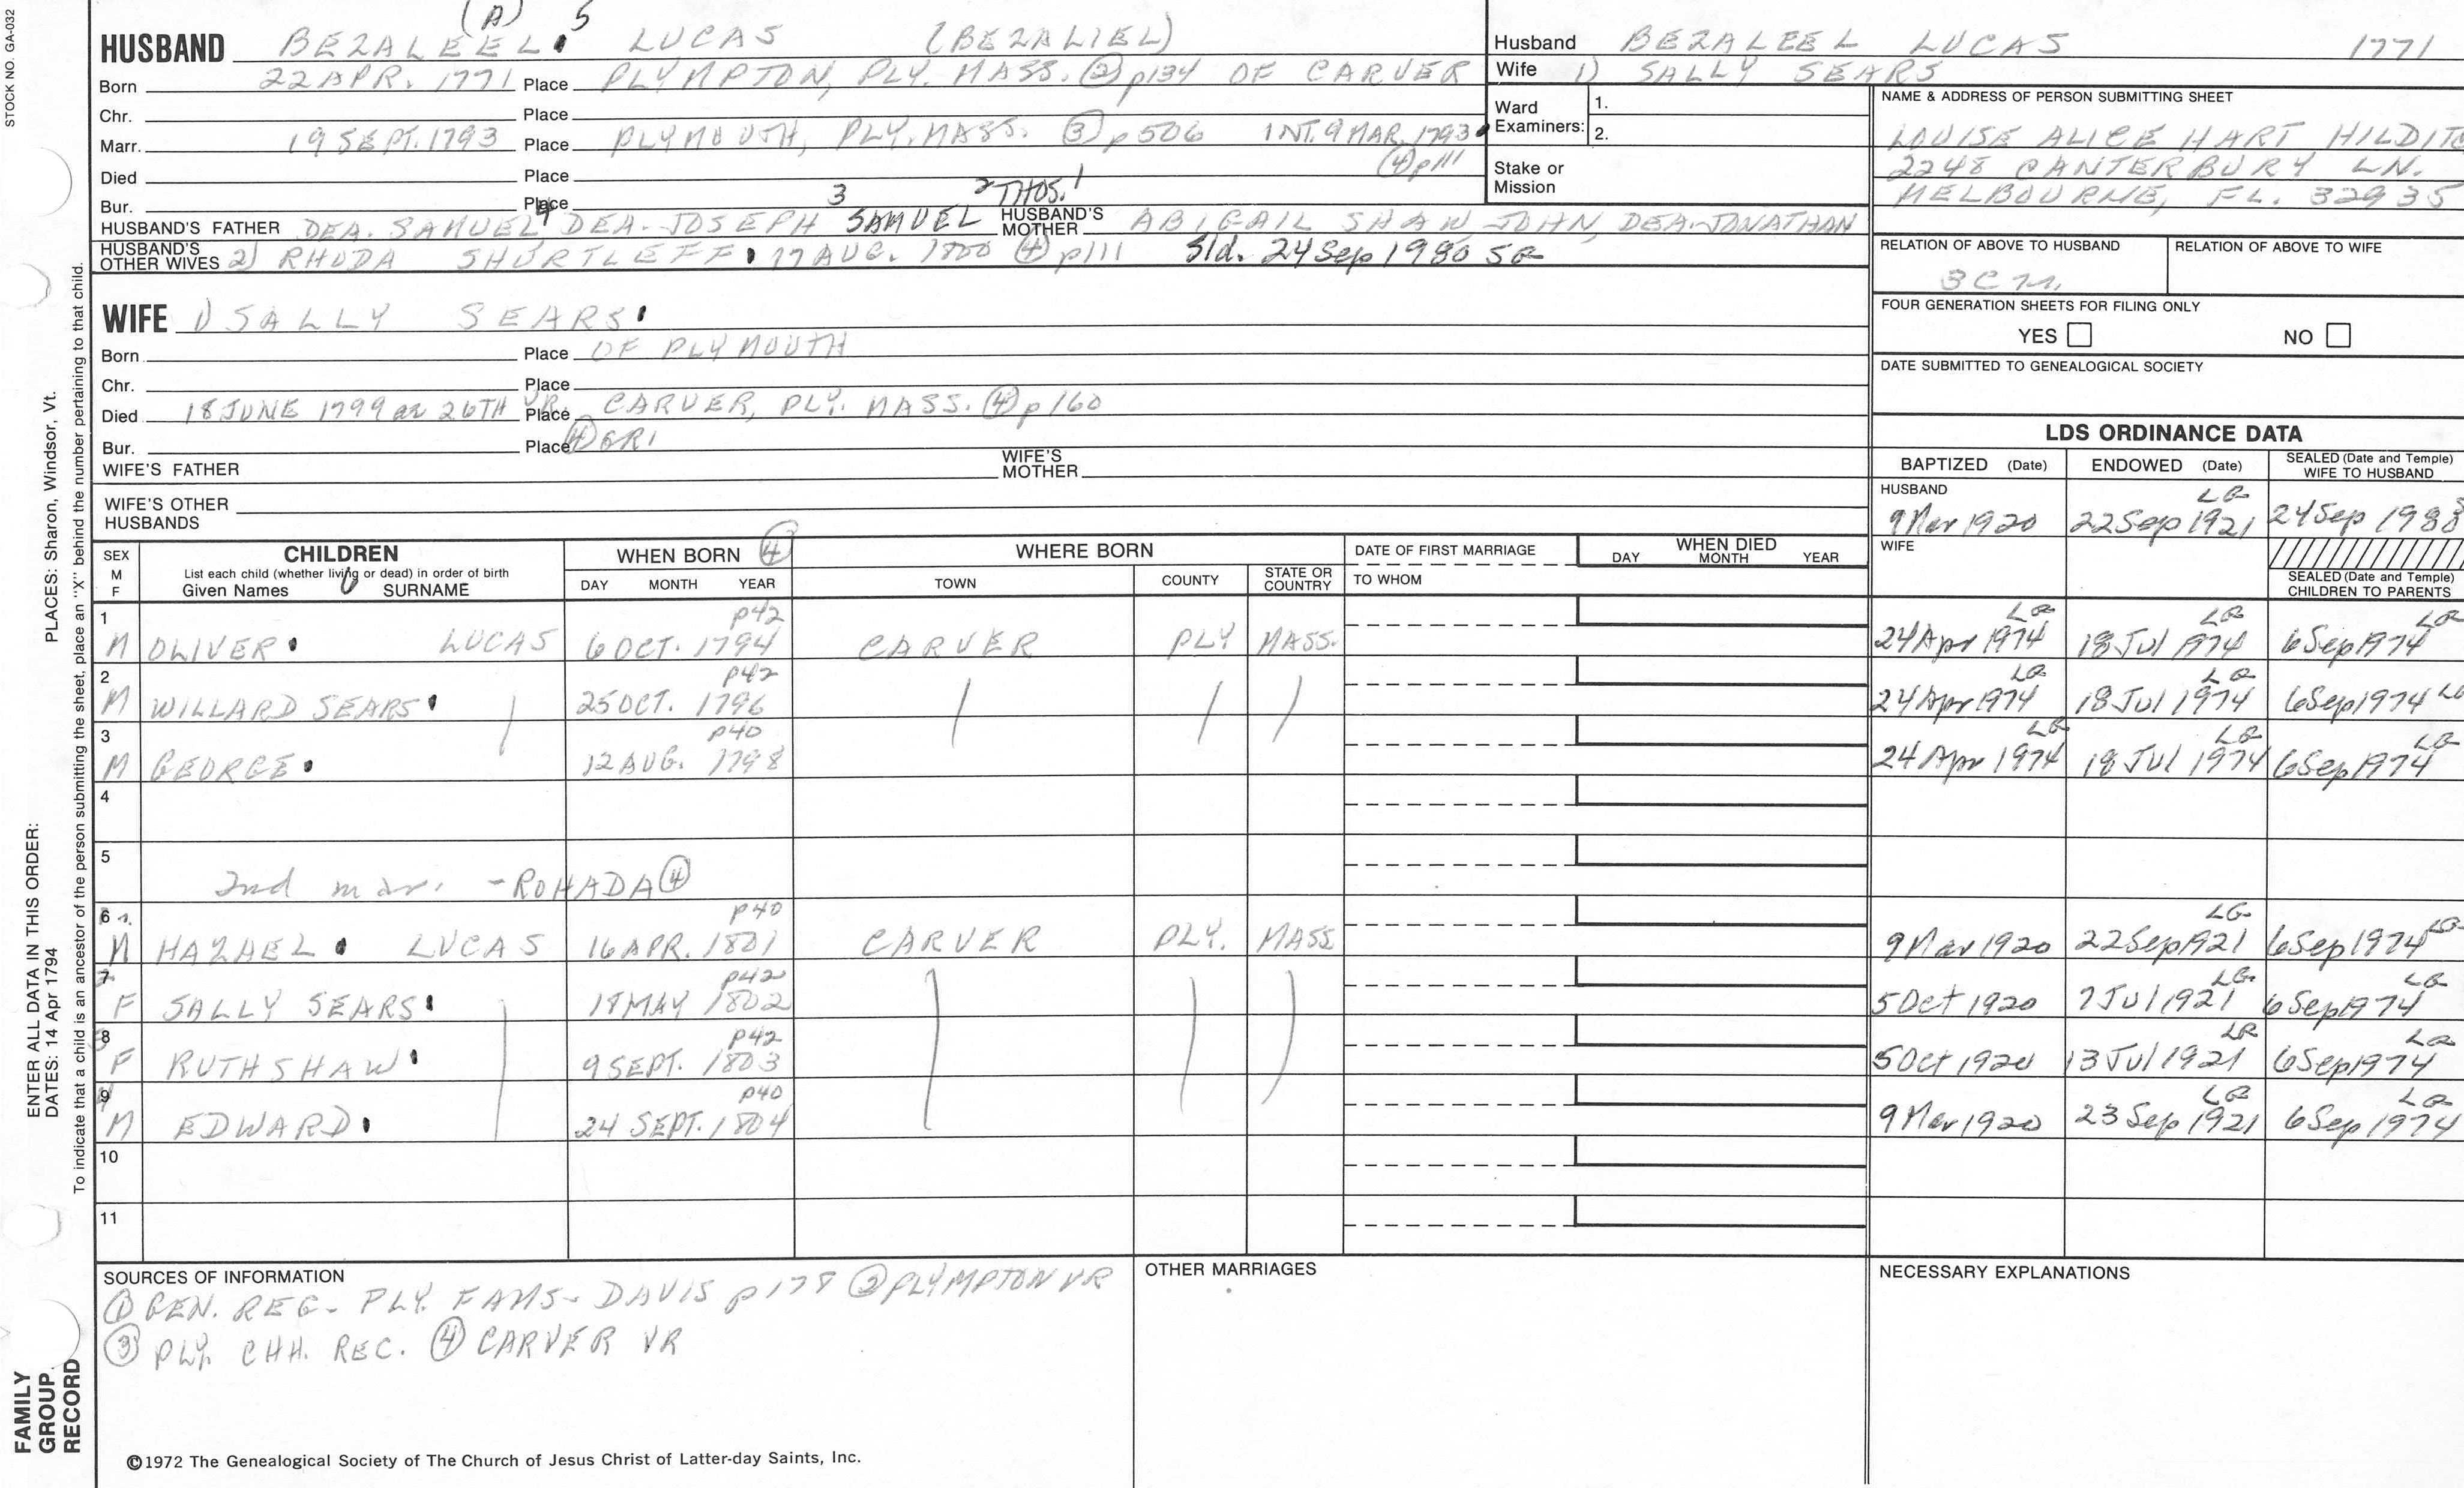 STOCK NO. GA-032
(A) 5
HUSBAND BEZALEEL LUCAS (BEZALIEL)
Born 22 APR. 1771 Place PLYMPTON, PLY. MASS. ② p134 OF CARVER
Chr. Place
Marr. 19 SEPT. 1793 Place PLYMOUTH, PLY. MASS. ③ p506 INT. 9 MAR. 1793
④ p111
Died Place
Bur. Place
3 2 THOS. 1
HUSBAND'S FATHER DEA. SAMUEL 4 DEA. JOSEPH SAMUEL HUSBAND'S MOTHER ABIGAIL SHAW JOHN, DEA. JONATHAN
HUSBAND'S OTHER WIVES 2) RHODA SHURTLEFF 17 AUG. 1800 ④ p111 Sld. 24 Sep 1980 SG
WIFE 1) SALLY SEARS
Born Place OF PLYMOUTH
Chr. Place
Died 18 JUNE 1799 26TH YR. Place CARVER, PLY. MASS. ④ p160
Bur. Place ④ GR1
WIFE'S FATHER WIFE'S MOTHER
WIFE'S OTHER HUSBANDS
Husband BEZALEEL LUCAS 1771
Wife 1) SALLY SEARS
Ward Examiners: 1.
2.
Stake or Mission
NAME & ADDRESS OF PERSON SUBMITTING SHEET
LOUISE ALICE HART
2248 CANTERBURY LN.
MELBOURNE, FL. 32935
RELATION OF ABOVE TO HUSBAND RELATION OF ABOVE TO WIFE
FOUR GENERATION SHEETS FOR FILING ONLY
YES NO
DATE SUBMITTED TO GENEALOGICAL SOCIETY
LDS ORDINANCE DATA
BAPTIZED (Date) ENDOWED (Date) SEALED (Date and Temple) WIFE TO HUSBAND
HUSBAND LG
9 Mar 1920 22 Sep 1921 24 Sep
WIFE
SEALED (Date and Temple) CHILDREN TO PARENTS
SEX M F CHILDREN WHEN BORN ④ WHERE BORN DATE OF FIRST MARRIAGE WHEN DIED
List each child (whether living or dead) in order of birth
Given Names SURNAME DAY MONTH YEAR TOWN COUNTY STATE OR COUNTRY TO WHOM DAY MONTH YEAR
1 p42 LG LG LG
M OLIVER LUCAS 6 OCT. 1794 CARVER PLY MASS. 24 Apr 1974 18 Jul 1974 6 Sep 1974
2 p42 LG LG
M WILLARD SEARS 25 OCT. 1796 24 Apr 1974 18 Jul 1974 6 Sep 1974
3 p40 LG LG LG
M GEORGE 12 AUG. 1798 24 Apr 1974 18 Jul 1974 6 Sep 1974
4
5
2nd mar. - ROHADA ④
6 p40 LG LG
M HAZAEL LUCAS 16 APR. 1801 CARVER PLY. MASS 9 Mar 1920 22 Sep 1921 6 Sep 1974
7 p42 LG LG
F SALLY SEARS 18 MAY 1802 5 Oct 1920 7 Jul 1921 6 Sep 1974
8 p42 LG LG
F RUTH SHAW 9 SEPT. 1803 5 Oct 1920 13 Jul 1921 6 Sep 1974
9 p40 LG LG
M EDWARD 24 SEPT. 1804 9 Mar 1920 23 Sep 1921 6 Sep 1974
10
11
SOURCES OF INFORMATION
① GEN. REG. PLY. FAMS - DAVIS p178 ② PLYMPTON VR
③ PLY. CHH. REC. ④ CARVER VR
OTHER MARRIAGES
NECESSARY EXPLANATIONS
©1972 The Genealogical Society of The Church of Jesus Christ of Latter-day Saints, Inc.
FAMILY GROUP RECORD
ENTER ALL DATA IN THIS ORDER:
DATES: 14 Apr 1794
PLACES: Sharon, Windsor, Vt.
To indicate that a child is an ancestor of the person submitting the sheet, place an "X" behind the number pertaining to that child.